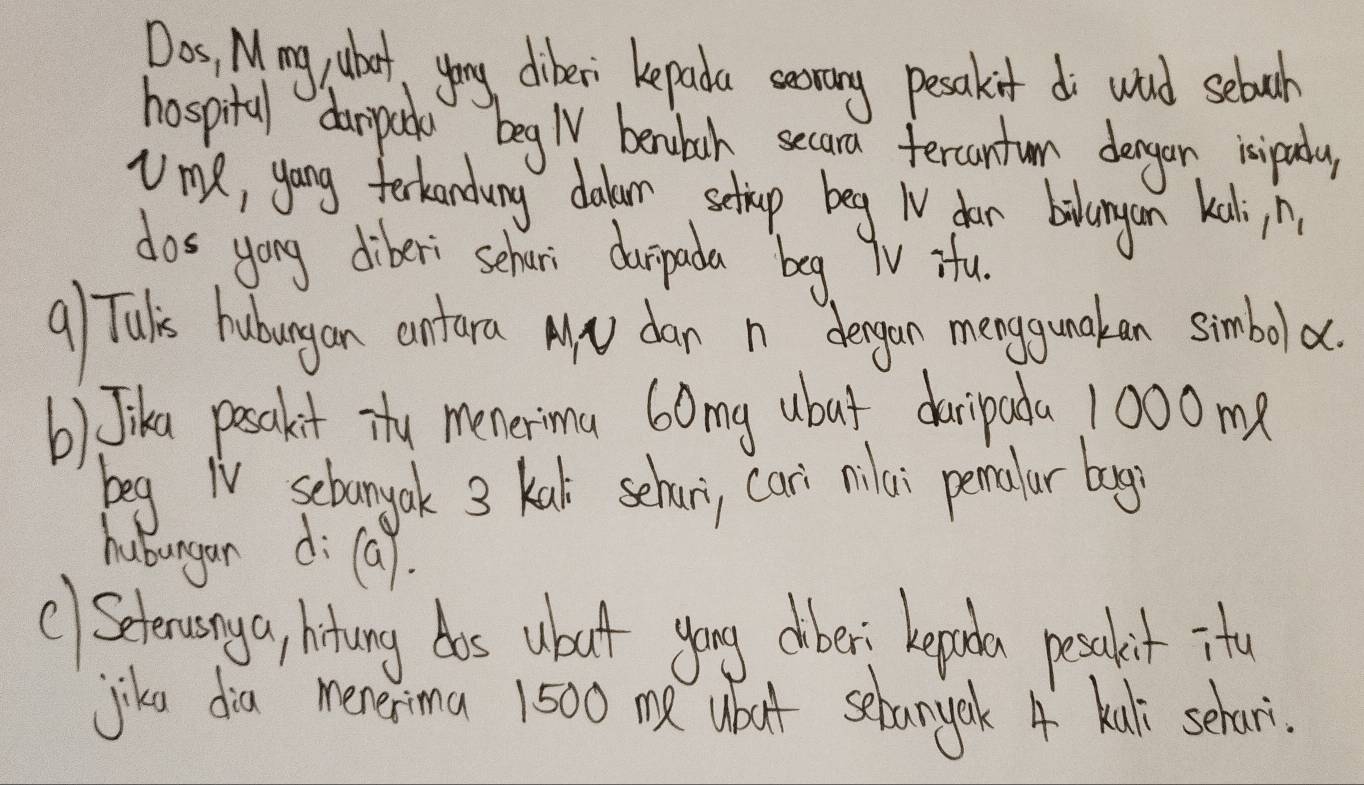 Dos, M mg, ubat yang diberi kepada seorang pesakit di wad sebuah
hospital daripada beg IV berubah secara tercantum dengan isipadu,
V ml, yang terkandung dalam setiap beg IV dan bilangan kali, n,
dos yang diberi sehari daripada beg IV itu.
a) Tulis hubungan antara M, V dan n dengan menggunakan simbol α.
b) Jika pesakit itu menerima 60mg ubat daripada 1000 ml
beg IV sebanyak 3 kali sehari, cari nilai pemalar bagi
hubungan di (a).
c) Seterusnya, hitung dos ubat yang diberi kepada pesakit itu
jika dia menerima 1500 ml ubat sebanyak 4 kali sehari.